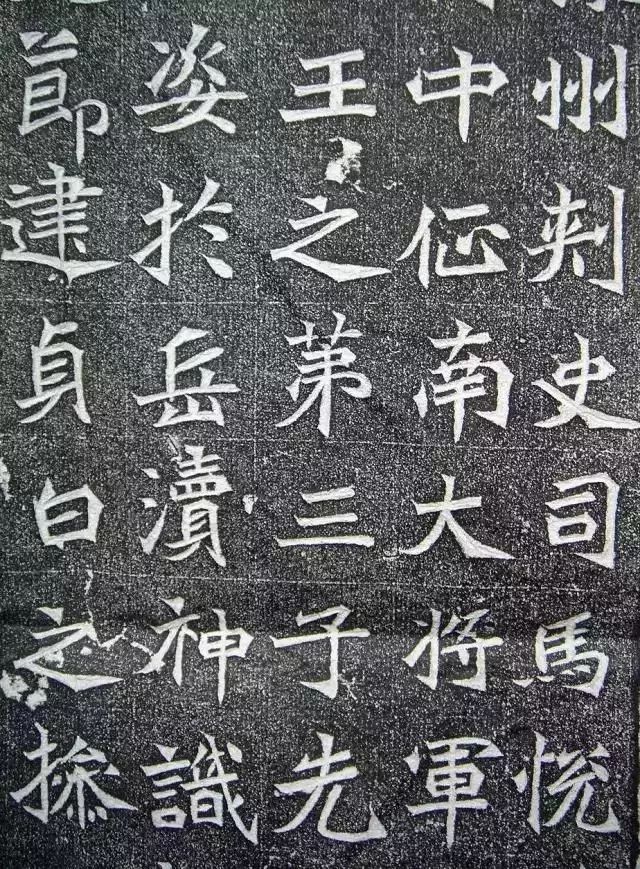 州刺史司馬悅
中征南大将軍
王之苐三子先
姿於岳瀆神識
莭建貞白之操